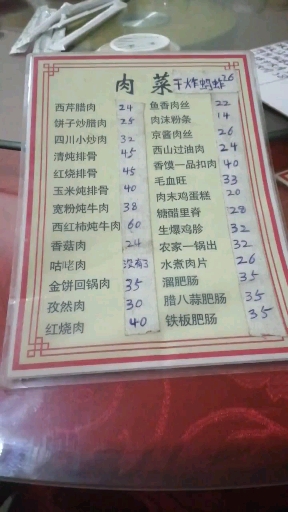 肉 菜 干炸蚂蚱26
西芹腊肉 24 鱼香肉丝 22
饼子炒腊肉 25 肉沫粉条 14
四川小炒肉 32 京酱肉丝 26
清炖排骨 45 西山过油肉 24
红烧排骨 45 香馍一品扣肉 40
玉米炖排骨 40 毛血旺 33
宽粉炖牛肉 38 肉末鸡蛋糕 20
西红柿炖牛肉 60 糖醋里脊 28
香菇肉 24 生爆鸡胗 32
咕咾肉 没有3 农家一锅出 32
金饼回锅肉 35 水煮肉片 26
孜然肉 30 溜肥肠 35
红烧肉 40 腊八蒜肥肠 35
铁板肥肠 35